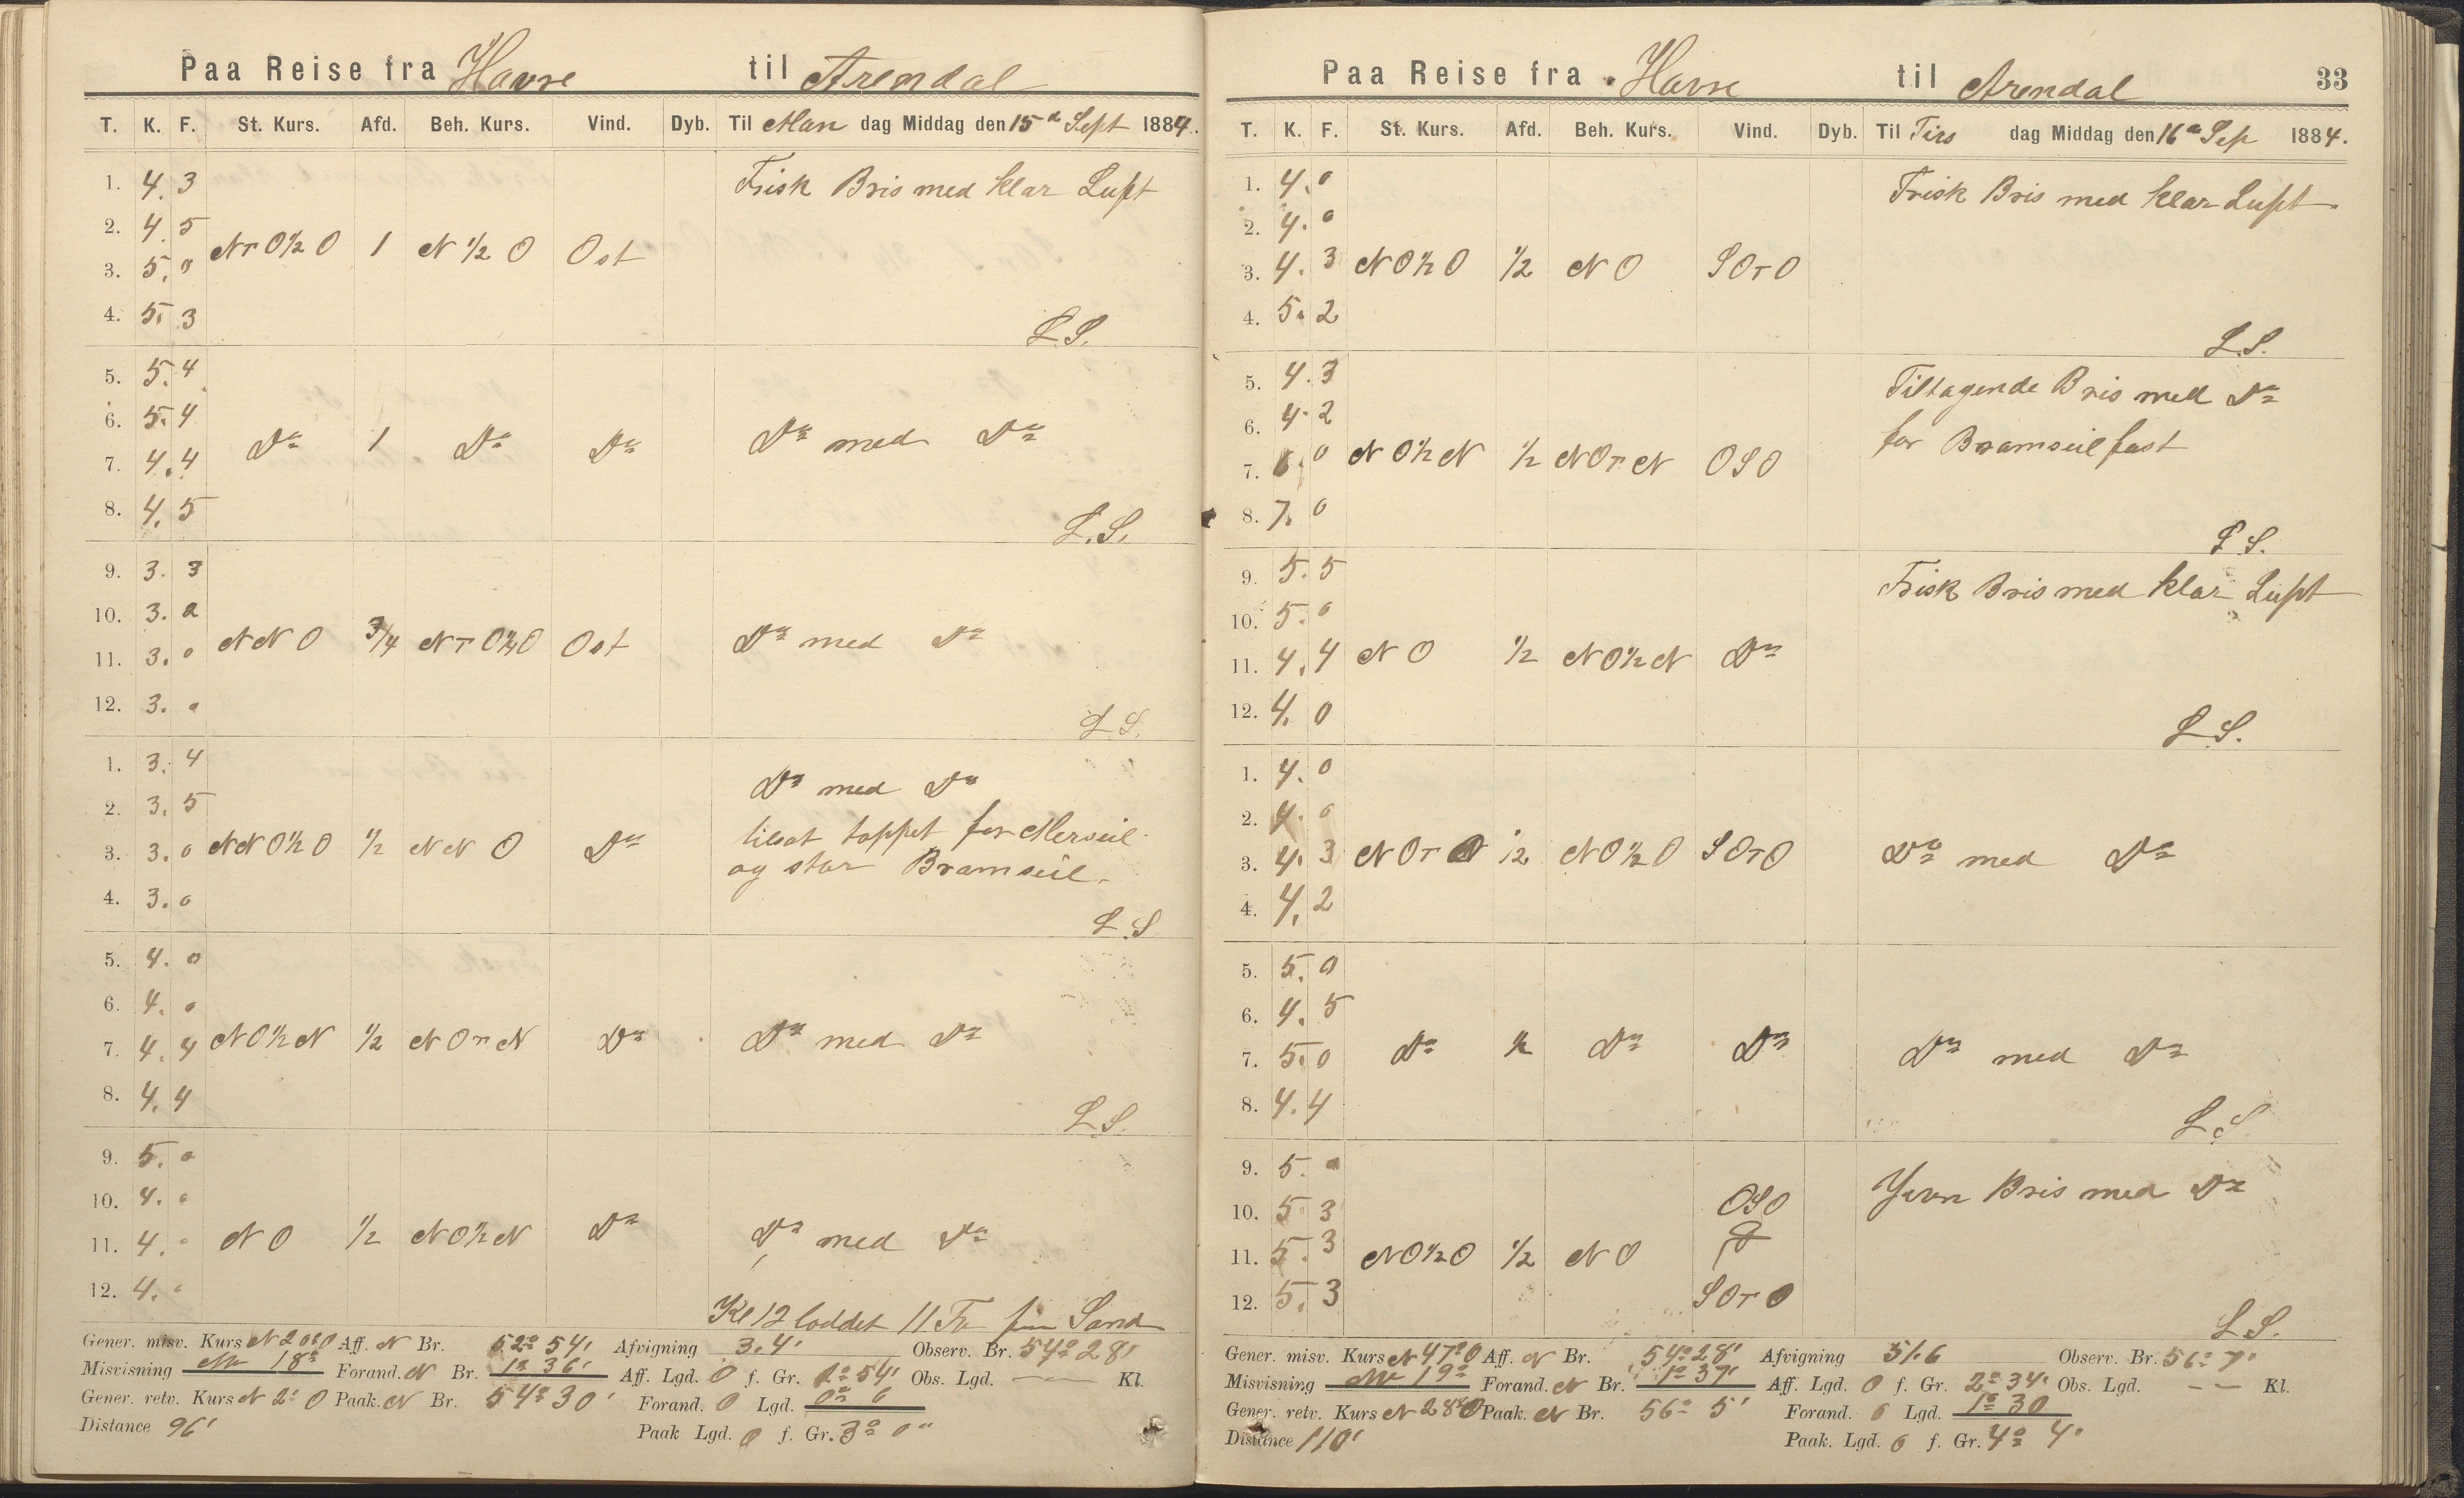 Paa Reise fra Havre til Arendal
T. K. F. St. Kurs. Afd. Beh. Kurs. Vind. Dyb. Til Man dag Middag den 15de Sept 1884.
1. 4. 3 Frisk Bris med klar Luft
2. 4. 5
NTO½O 1 N½O Ost
3. 5. 0
4. 5. 3
L.S.
5. 5. 4
6. 5. 4
Do 1 Do Do Do med Do
7. 4. 4
8. 4. 5
L.S.
9. 3. 3
10. 3. 0
11. 3. 0 NNO ¾ Ost Do med Do
12. 3. 0
L.S.
1. 3. 4
Do med Do
2. 3. 5
tilsat toppet for Merseil
3. 3. 0 NNO½O ½ NNO Do
og stor Bramseil.
4. 3. 0
L.S
5. 4. 0
6. 4. 0
7. 4. 4 NO½N ½ NOTN Do Do med Do
8. 4. 4
L.S.
9. 5. 0
10. 4. 0
11. 4. 0 NO ½ NO½N Do Do med Do
12. 4. 0
Kl 12 loddet 11 Fv fin Sand
Gener. misv. Kurs N 20° O Aff. N Br. 52° 54' Afvigning 3.4' Observ. Br. 54° 28'
Misvisning NW 18° Forand. N Br. 1° 36' Aff. Lgd. O f. Gr. 2° 54' Obs. Lgd. — Kl.
Gener. retv. Kurs N 2° O Paak. N Br. 54° 30' Forand. O Lgd. 0° 6
Distance 96' Paak Lgd. O f. Gr. 3° 0"
Paa Reise fra Havre til Arendal 33
T. K. F. St. Kurs. Afd. Beh. Kurs. Vind. Dyb. Til Tirs dag Middag den 16de Sep 1884.
1. 4. 0 Frisk Bris med klar Luft
2. 4. 0
3. 4. 3 NO½O ½ NO SOTO
4. 5. 2
L.S.
5. 4. 3 Tiltagende Bris med Do
6. 4. 2
for Bramseil fast
7. 6. 0 NO½N ½ NOTN OSO
8. 7. 0
L.S.
9. 5. 5 Frisk Bris med klar Luft
10. 5. 0
11. 4. 4 NO ½ NO½N Do
12. 4. 0
L.S.
1. 4. 0
2. 4. 0
3. 4. 3 NOTO ½ NO½O SOTO Do med Do
4. 4. 2
5. 5. 0
6. 4. 5
7. 5. 0 Do ½ Do Do Do med Do
8. 4. 4
L.S.
9. 5. 0 Jevn Bris med Do
10. 5. 3 OSO
11. 5. 3 NO½O ½ NO
12. 5. 3 SOTO
L.S.
Gener. misv. Kurs N 47° O Aff. N Br. 54° 28' Afvigning 51.6 Observ. Br. 56° 7'
Misvisning NW 19° Forand. N Br. 1° 37' Aff. Lgd. O f. Gr. 2° 34' Obs. Lgd. — — Kl.
Gener. retv. Kurs N 28° O Paak. N Br. 56° 5' Forand. O Lgd. 1° 30
Distance 110' Paak. Lgd. O f. Gr. 4° 4'